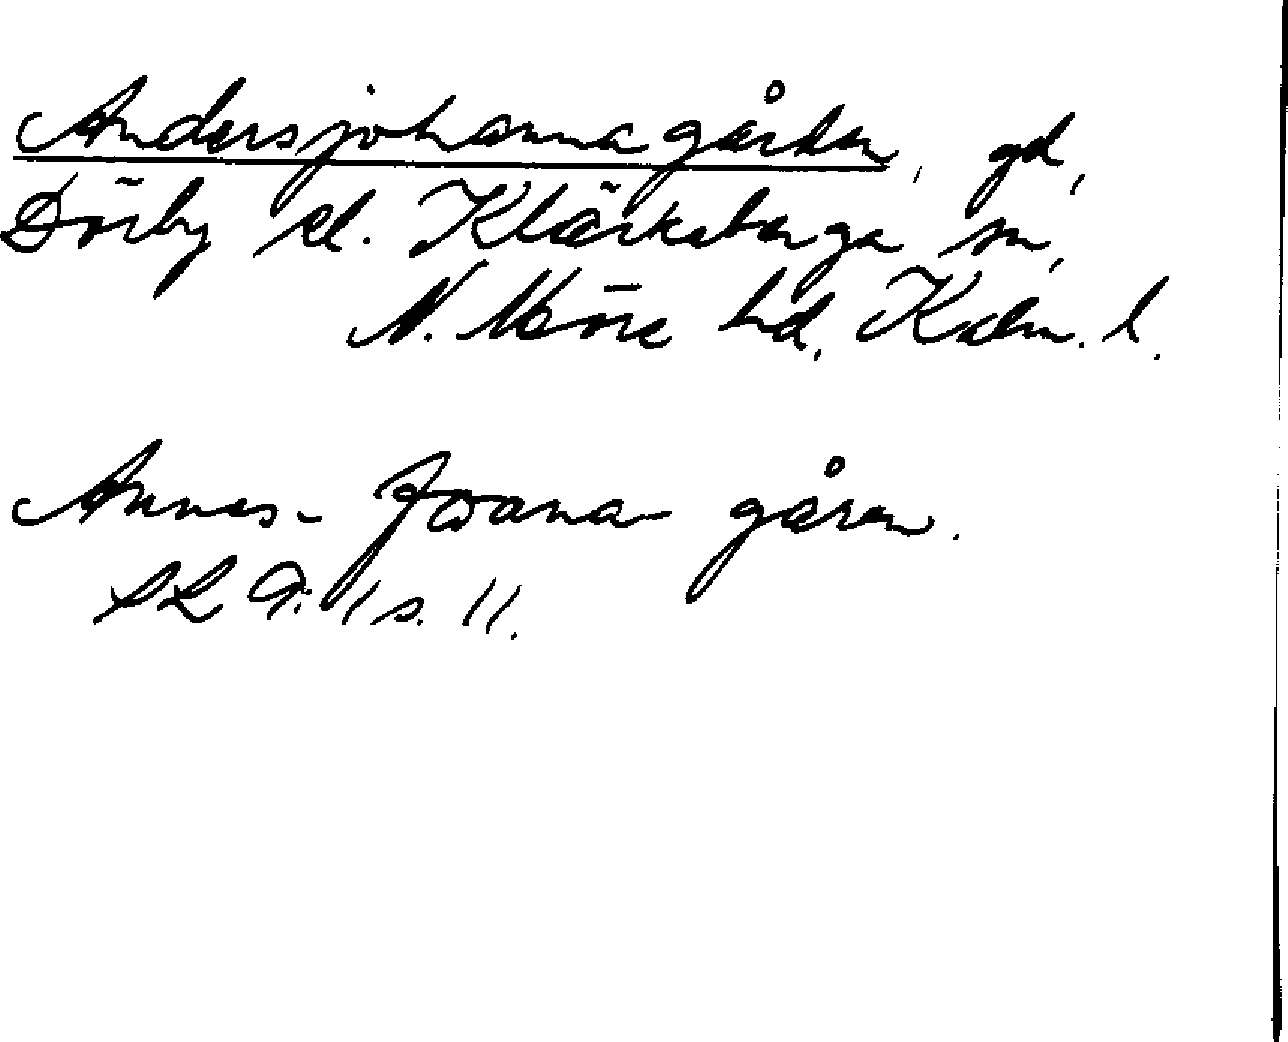 Andersjohannagården, gd,
Dörby kl. Kläckeberga sn,
N. Möre hd, Kalm. l.
Annes-Joana-gåren.
SL 9:1 s. 11.